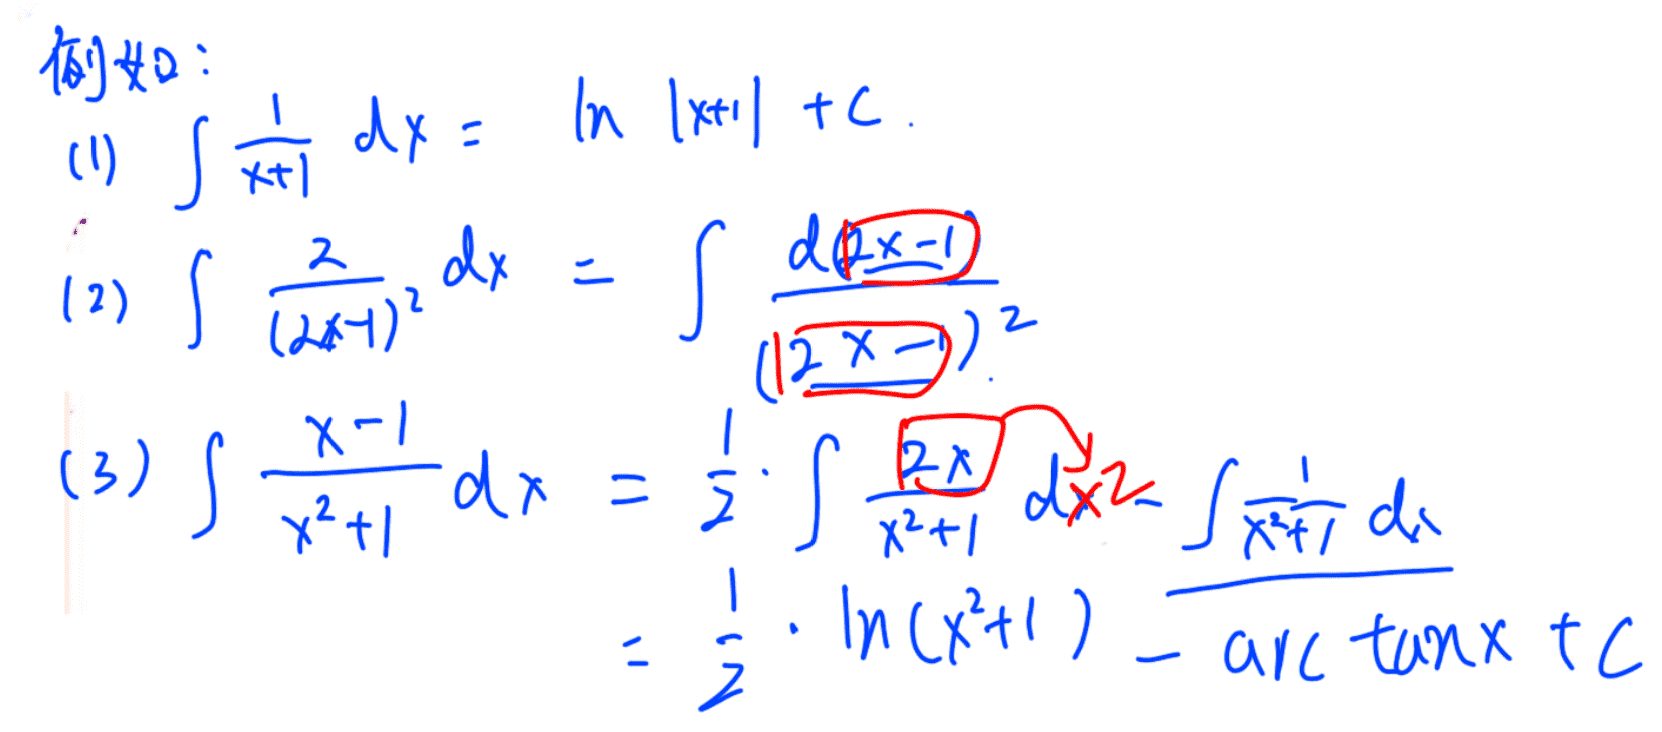 例如:
(1) ∫ 1/(x+1) dx = ln |x+1| + C.
(2) ∫ 2/(2x-1)² dx = ∫ d(2x-1)/(2x-1)².
(3) ∫ (x-1)/(x²+1) dx = 1/2 · ∫ 2x/(x²+1) dx² - ∫ 1/(x²+1) dx
= 1/2 · ln(x²+1) - arctanx + C